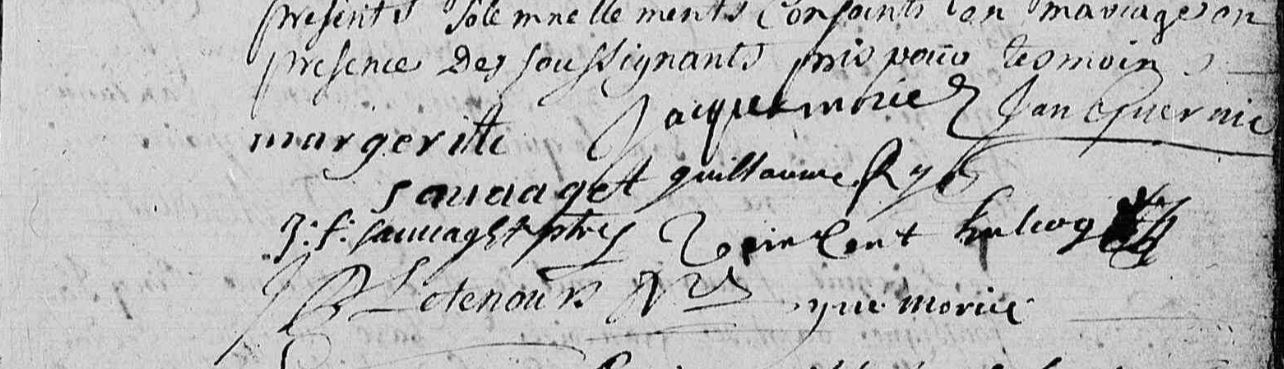 presents solemnellements conjoints en mariage en
presence des soussignants pris pour tesmoins
margerite Jacques morice Jan Guernic
sauvaget guillaume Ryo
J: f: sauvaget ptre vincent
yve morice